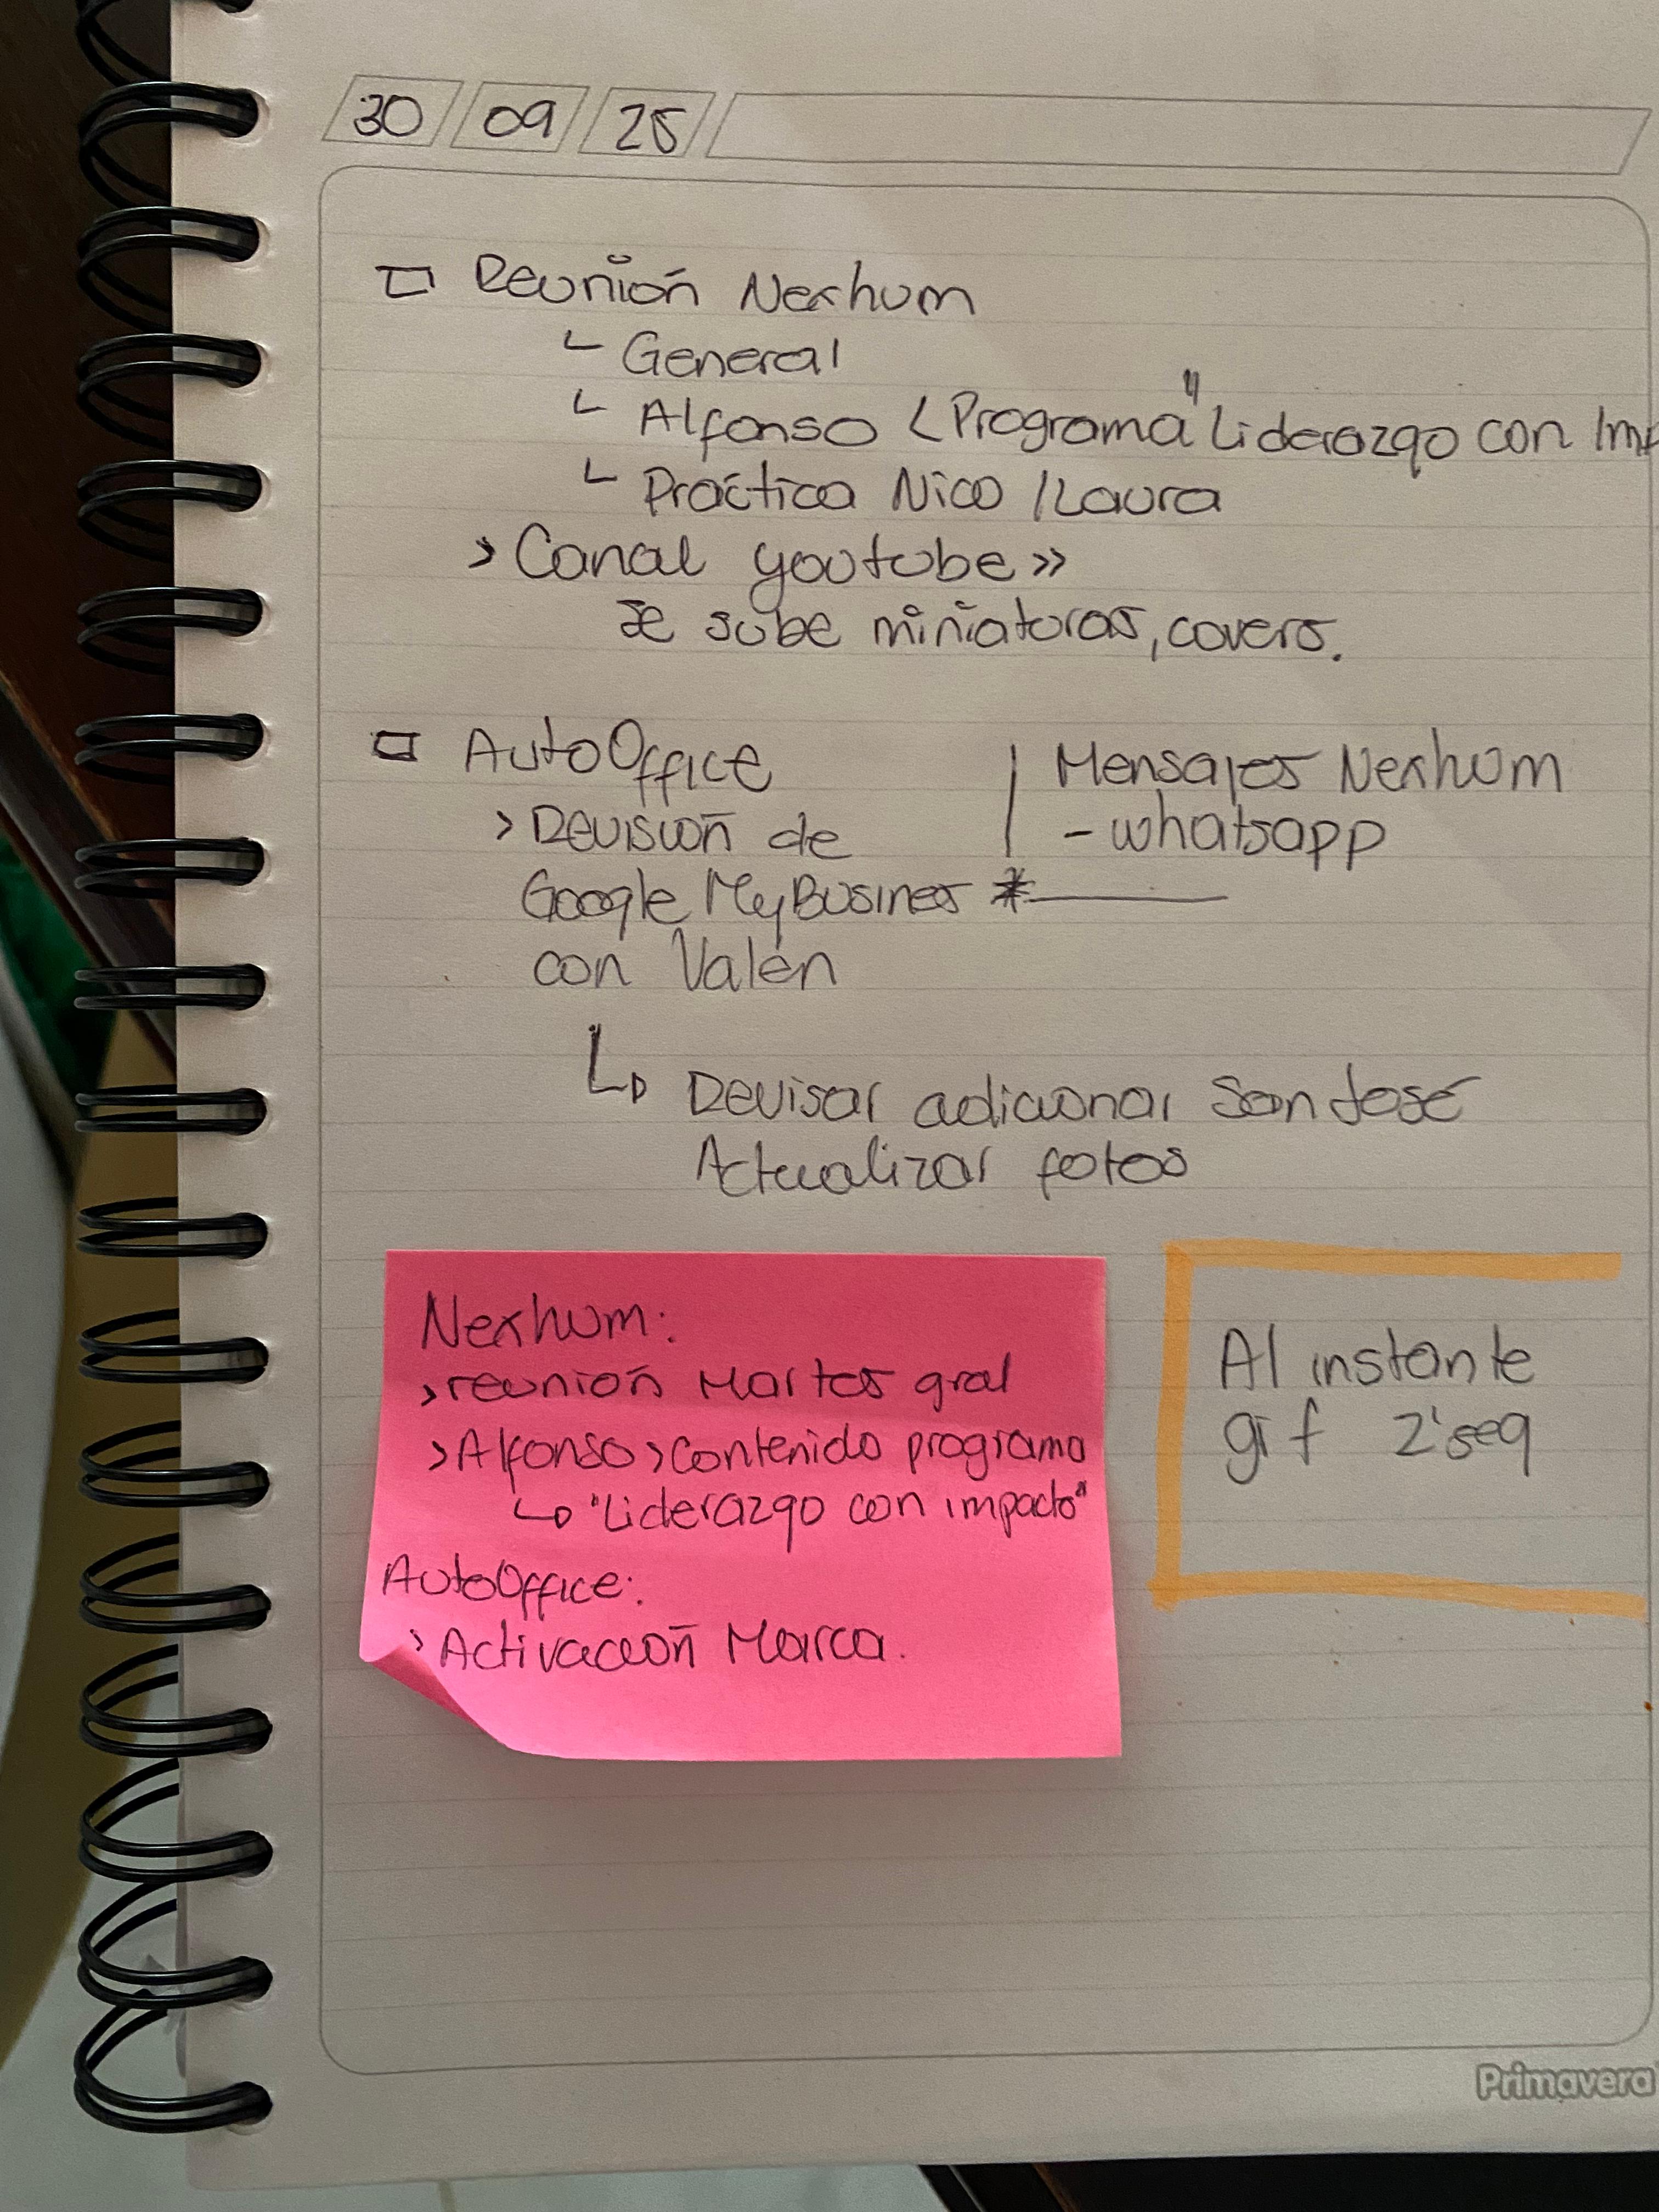 30 09 25
Reunión Nexhum
General
Alfonso < Programa "Liderazgo con Imp
Práctica Nico / Laura
> Canal youtube >>
Se sube miniaturas, covers.
AutoOffice
> Revisión de
Google MyBusines *
con Valen
| Mensajes Nexhum
- whatsapp
Revisar adicionar San José
Actualizar fotos
Nexhum:
> reunión Martes gral
> Alfonso > Contenido programa
"Liderazgo con impacto"
AutoOffice:
> Activación Marca.
Al instante
gif 2' seg
Primavera